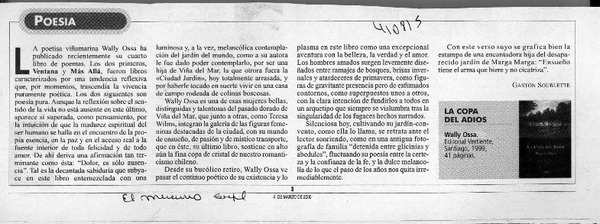 POESIA
410915
LA poetisa viñamarina Wally Ossa ha
publicado recientemente su cuarto
libro de poemas. Los dos primeros,
Ventana y Más Allá, fueron libros
caracterizados por una tendencia reflexiva
que, por momentos, trascendía la vivencia
puramente poética. Los dos siguientes son
poesía pura. Aunque la reflexión sobre el sen-
tido de la vida no está ausente en este último,
aparece si superada, como pensamiento, por
la intuición de que la madurez espiritual del
ser humano se halla en el encuentro de la pro-
pia esencia, en la paz y en el acceso real a la
fuente interior de toda felicidad y de todo
amor. De ahí deriva una afirmación tan ter-
minante como ésta: "Dolor, es sólo ausen-
cia". Tal es la decantada sabiduría que subya-
ce en este libro entremezclada con una
luminosa y, a la vez, melancólica contempla-
ción del jardín del mundo, como a su autora
le fue dado poder contemplarlo, por ser una
hija de Viña del Mar, la que otrora fuera la
«Ciudad Jardín», hoy totalmente arrasada, y
por haberle tocado en suerte vivir en una casa
de campo rodeada de colinas boscosas.
Wally Ossa es una de esas mujeres bellas,
distinguidas y talentosas del pasado dorado de
Viña del Mar, que junto a otras, como Teresa
Wilms, integran la galería de las figuras feme-
ninas destacadas de la ciudad, con su mundo
de ensueño, de pasión y de místico transporte,
que en éste, su último libro, sostiene en alto
aún la fina copa de cristal de nuestro romanti-
cismo chileno.
Desde su bucólico retiro, Wally Ossa ve
pasar el continuo poético de su existencia y lo
plasma en este libro como una excepcional
aventura con la belleza, la verdad y el amor.
Los hombres amados surgen levemente dise-
ñados entre ramajes de bosques, brisas inver-
nales y atardeceres de primavera, como figu-
ras de gravitante presencia pero de esfumados
contornos, como superpuestos unos a otros,
con la clara intención de fundirlos a todos en
un arquetipo que siempre se vislumbra tras la
singularidad de los fugaces hechos narrados.
Silenciosa hoy, cultivando su jardín-con-
vento, como ella lo llama, se retrata ante el
lector sonriendo, como en una antigua foto-
grafía de familia "detenida entre glicinias y
abedules", fluctuando su poesía entre la certe-
za y la confianza de la fe, y la dulce melanco-
lía de lo que el paso de los años nos quita irre-
mediablemente.
Con este verso suyo se grafica bien la
estampa de una encantadora hija del desapa-
recido jardín de Marga Marga: "Ensueño
tiene el arma que hiere y no cicatriza".
GASTÓN SOUBLETTE
LA COPA
DEL ADIOS
Wally Ossa.
Editorial Vertiente,
Santiago, 1999,
41 páginas.
3
4 DE MARZO DE 2000